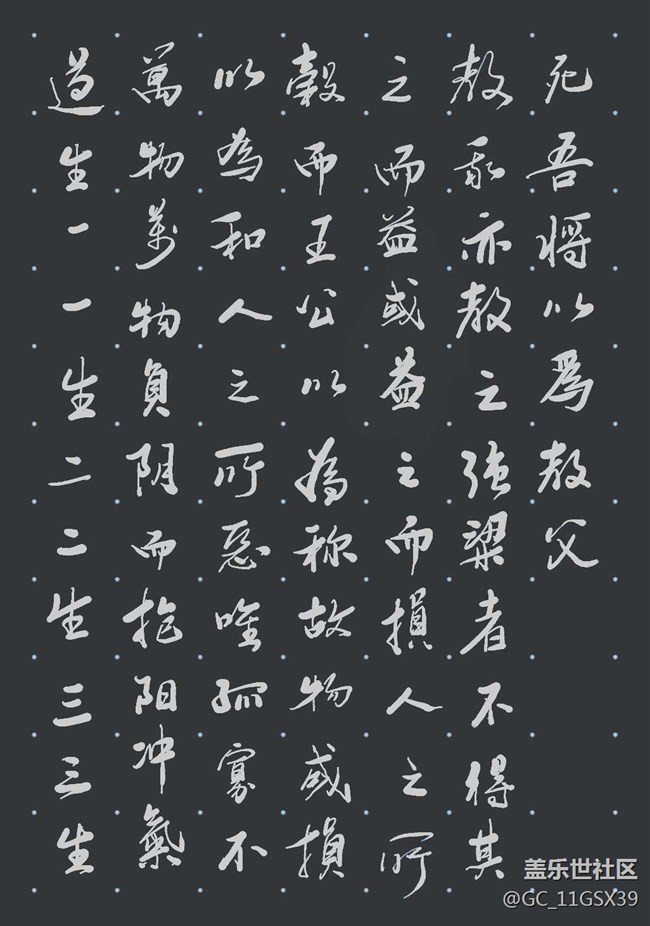 道生一一生二二生三三生
萬物萬物負阴而抱阳冲氣
以為和人之所惡唯孤寡不
穀而王公以為称故物或損
之而益或益之而損人之所
教我亦教之强梁者不得其
死吾将以爲教父
盖乐世社区
@GC_11GSX39